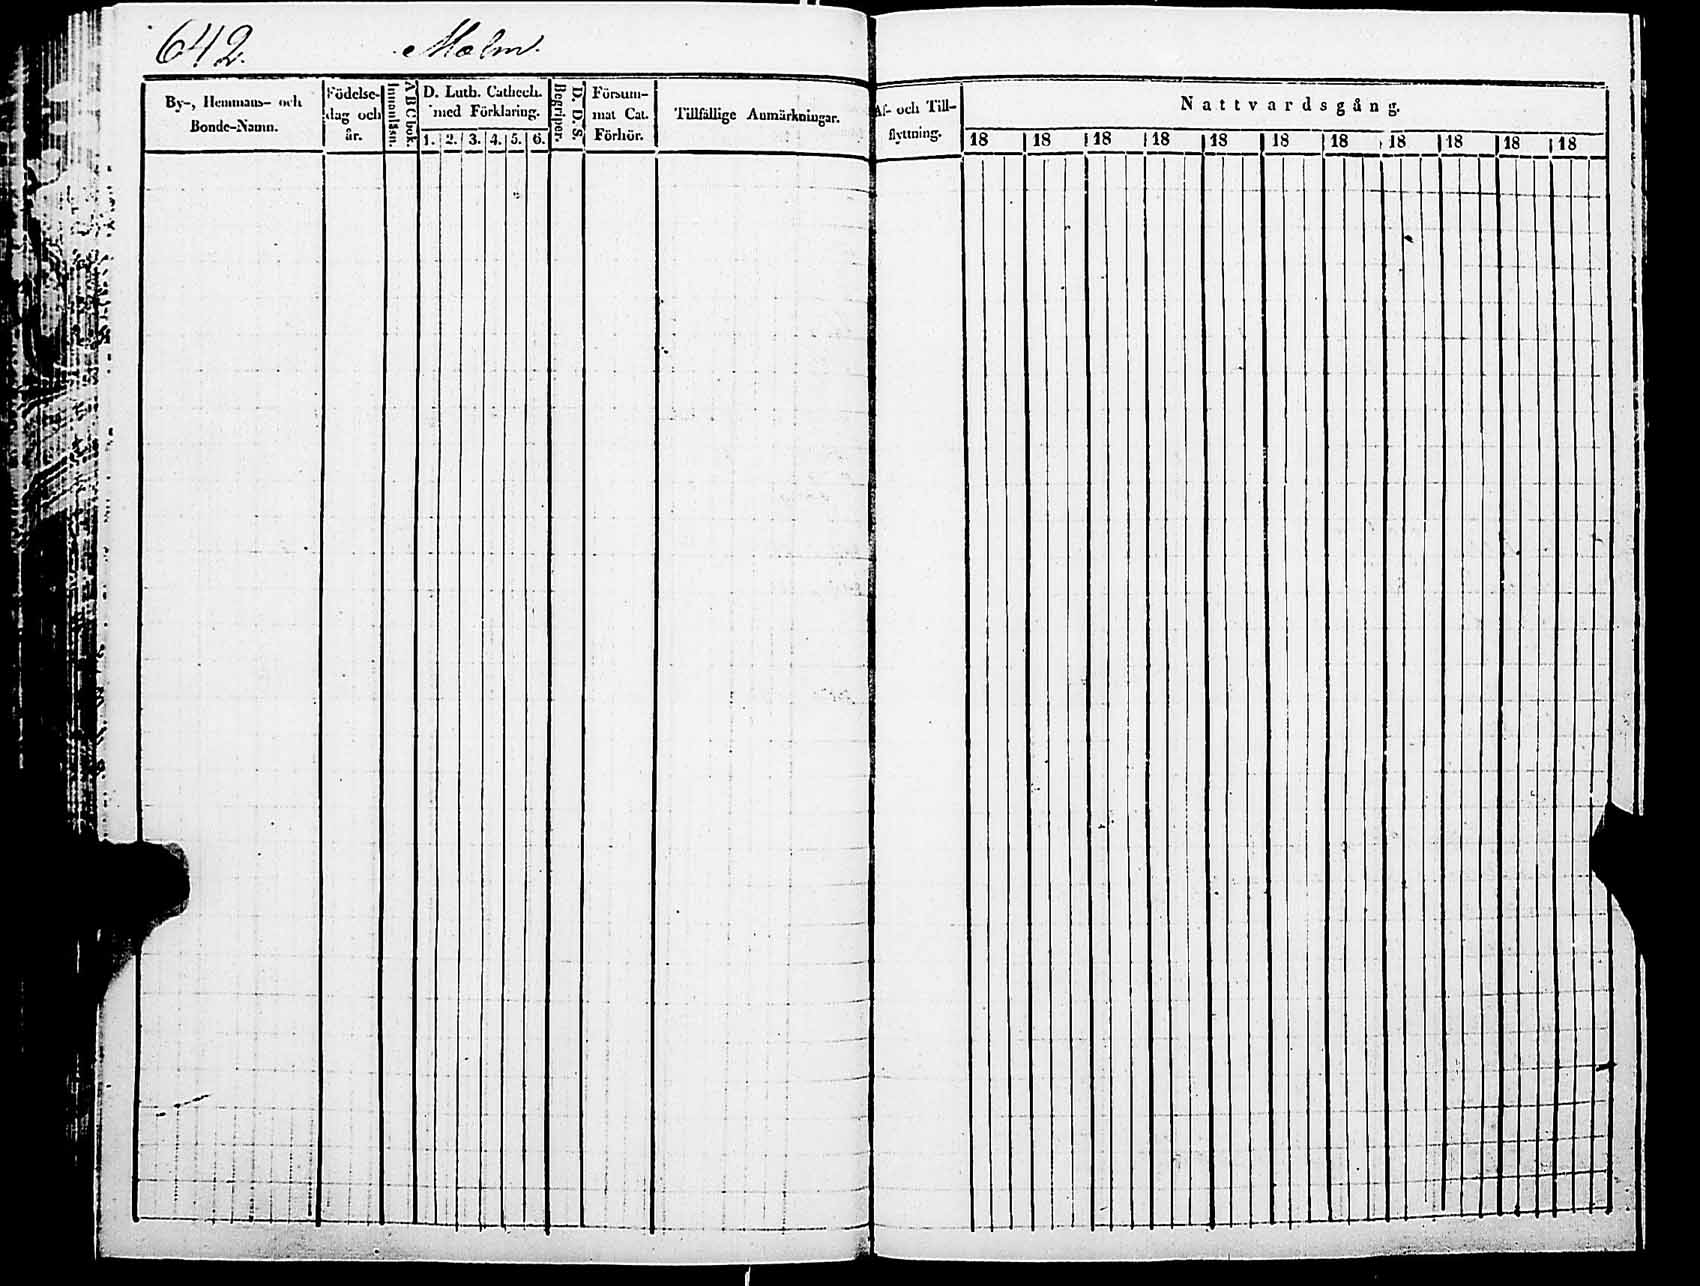 642. Malm.
By-, Hemmans- och
Bonde-Namn.
Födelse-
dag och
år.
Innanläsn.
A B C bok.
D. Luth. Cathech.
med Förklaring.
1. 2. 3. 4. 5. 6.
Begriper.
D. D. S.
Försum-
mat Cat.
Förhör.
Tillfällige Anmärkningar.
Af- och Till-
flyttning.
Nattvardsgång.
18 18 18 18 18 18 18 18 18 18 18